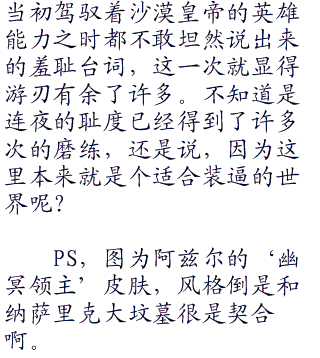 当初驾驭着沙漠皇帝的英雄
能力之时都不敢坦然说出来
的羞耻台词，这一次就显得
游刃有余了许多。不知道是
连夜的耻度已经得到了许多
次的磨练，还是说，因为这
里本来就是个适合装逼的世
界呢？
PS，图为阿兹尔的‘幽
冥领主’皮肤，风格倒是和
纳萨里克大坟墓很是契合
啊。